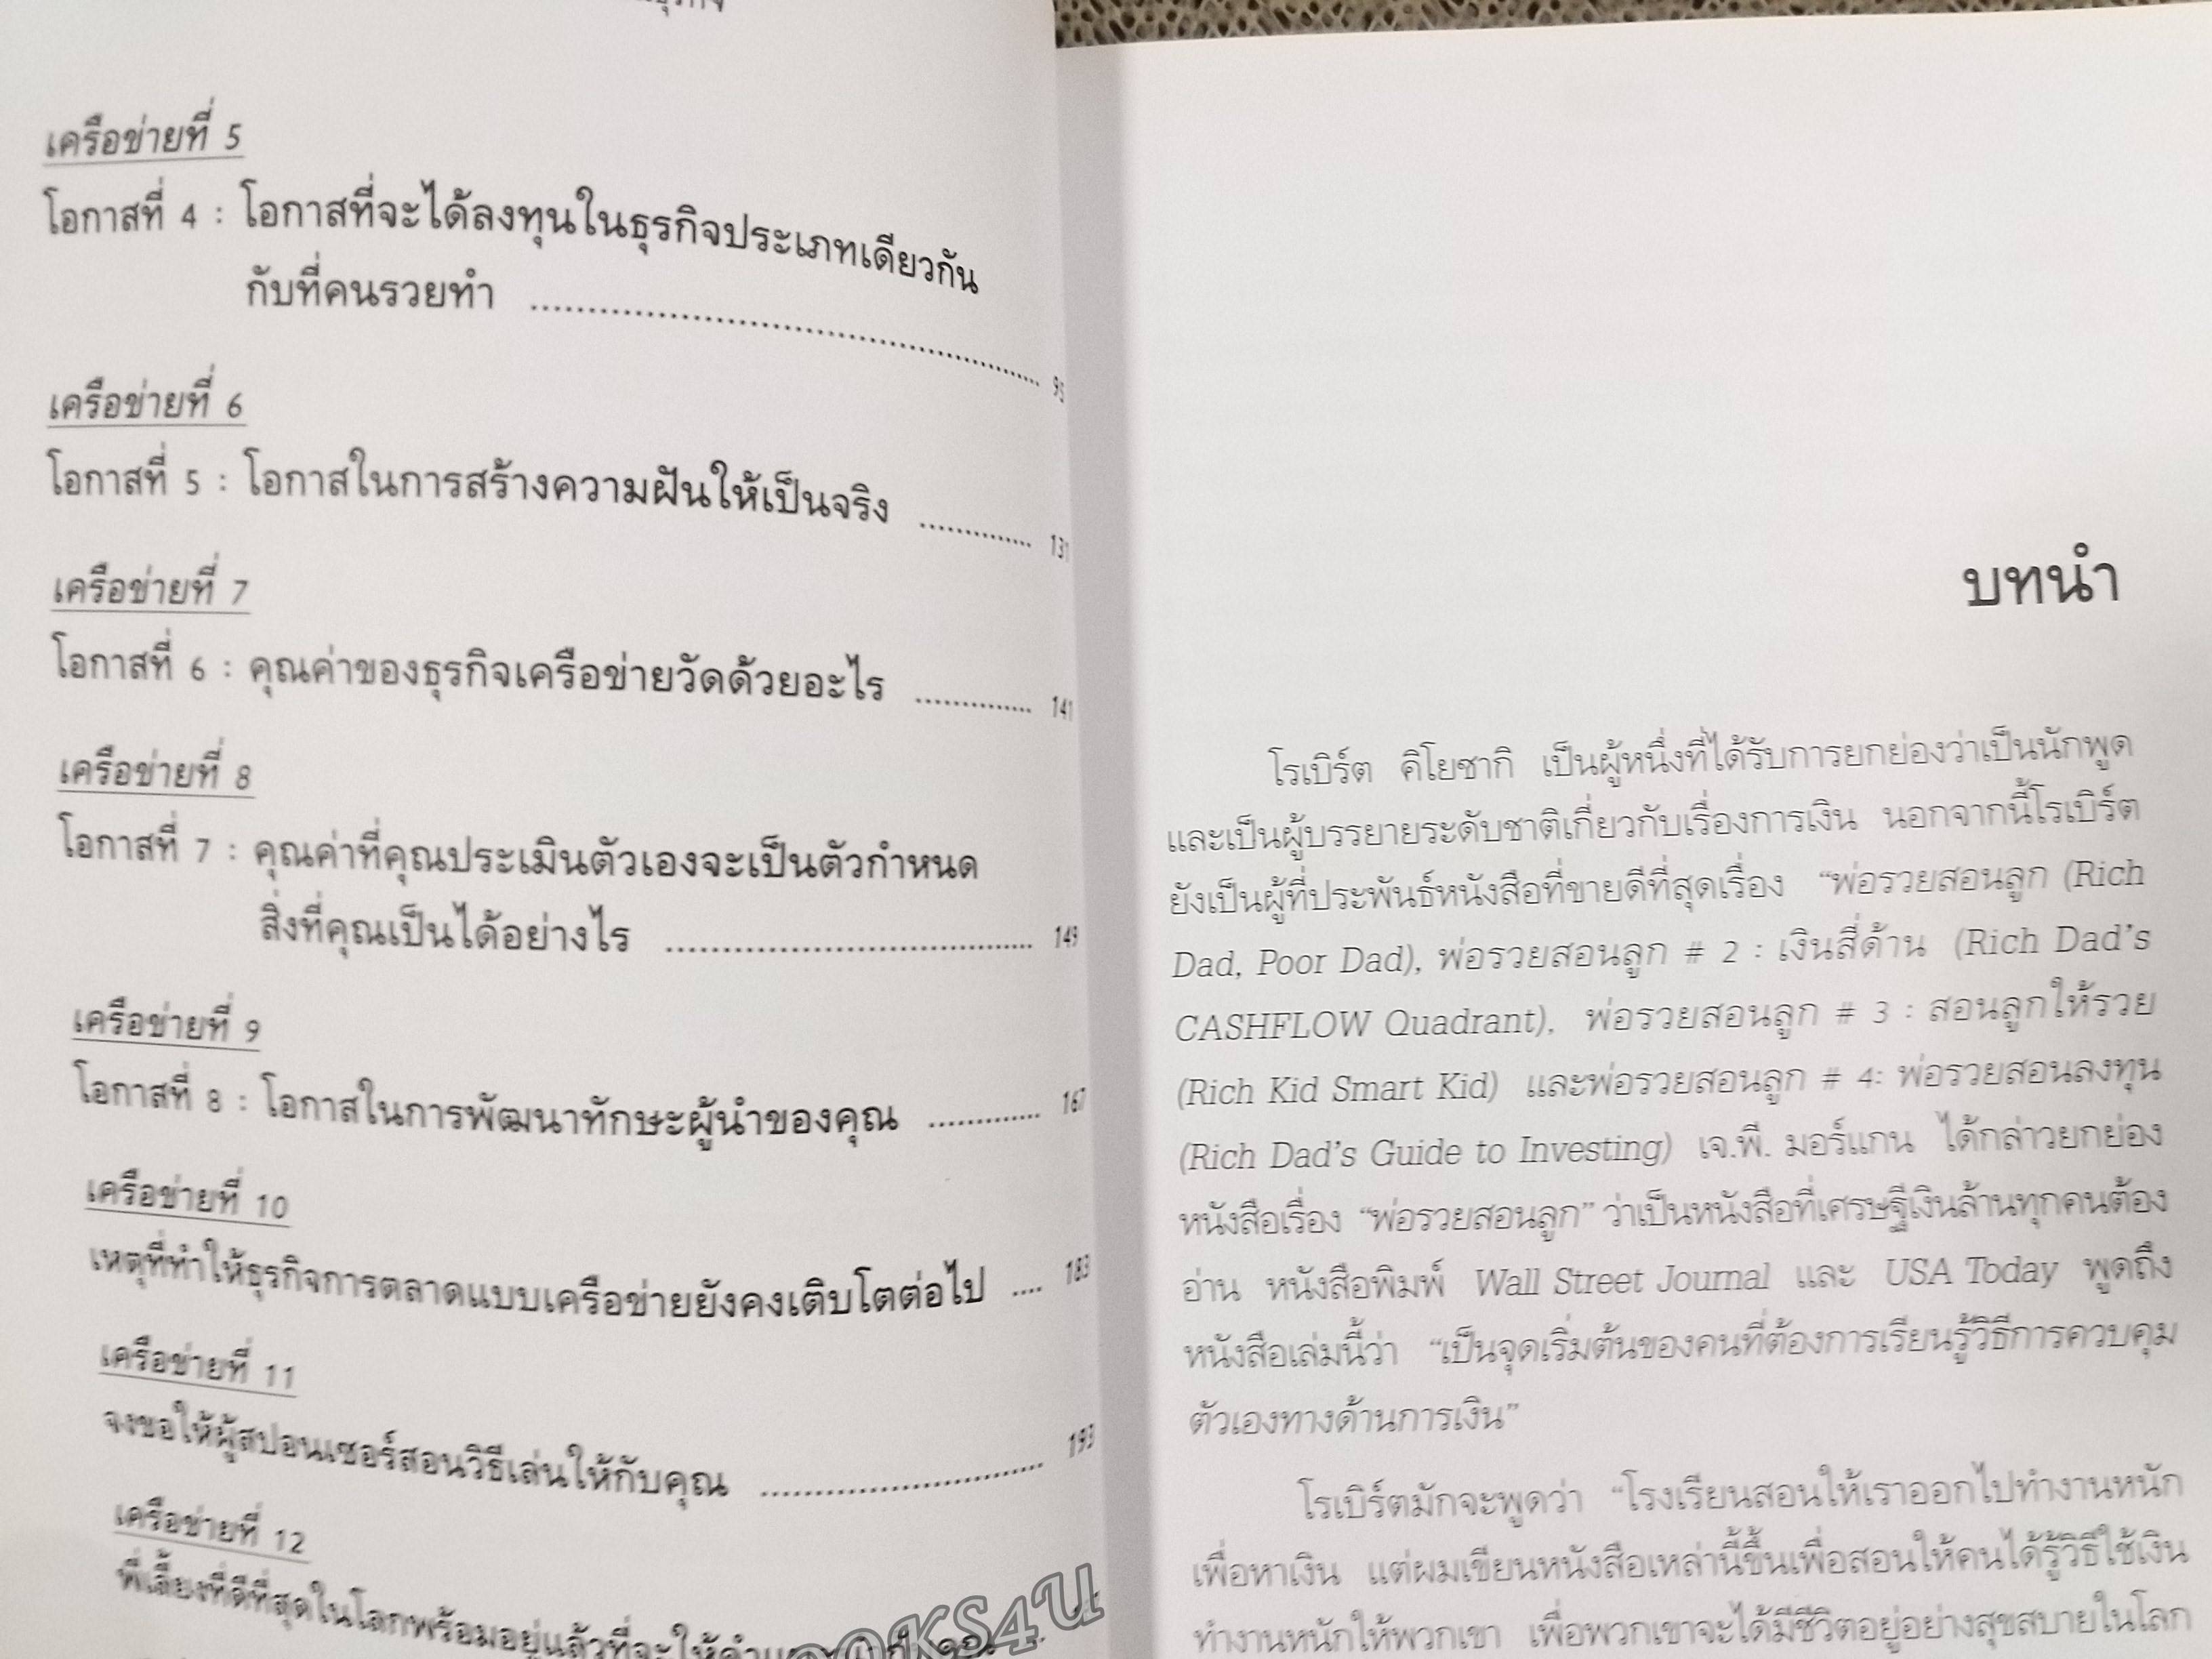 เครือข่ายที่ 5
โอกาสที่ 4 : โอกาสที่จะได้ลงทุนในธุรกิจประเภทเดียวกัน
กับที่คนรวยทำ ........ 95
เครือข่ายที่ 6
โอกาสที่ 5 : โอกาสในการสร้างความฝันให้เป็นจริง ........ 131
เครือข่ายที่ 7
โอกาสที่ 6 : คุณค่าของธุรกิจเครือข่ายวัดด้วยอะไร ........ 141
เครือข่ายที่ 8
โอกาสที่ 7 : คุณค่าที่คุณประเมินตัวเองจะเป็นตัวกำหนด
สิ่งที่คุณเป็นได้อย่างไร ........ 149
เครือข่ายที่ 9
โอกาสที่ 8 : โอกาสในการพัฒนาทักษะผู้นำของคุณ ........ 167
เครือข่ายที่ 10
เหตุที่ทำให้ธุรกิจการตลาดแบบเครือข่ายยังคงเติบโตต่อไป .... 183
เครือข่ายที่ 11
จงขอให้ผู้สปอนเซอร์สอนวิธีเล่นให้กับคุณ ........ 193
เครือข่ายที่ 12
พี่เลี้ยงที่ดีที่สุดในโลกพร้อมอยู่แล้วที่จะให้
บทนำ
โรเบิร์ต คิโยซากิ เป็นผู้หนึ่งที่ได้รับการยกย่องว่าเป็นนักพูด
และเป็นผู้บรรยายระดับชาติเกี่ยวกับเรื่องการเงิน นอกจากนี้โรเบิร์ต
ยังเป็นผู้ที่ประพันธ์หนังสือที่ขายดีที่สุดเรื่อง “พ่อรวยสอนลูก (Rich
Dad, Poor Dad), พ่อรวยสอนลูก # 2 : เงินสี่ด้าน (Rich Dad's
CASHFLOW Quadrant), พ่อรวยสอนลูก # 3 : สอนลูกให้รวย
(Rich Kid Smart Kid) และพ่อรวยสอนลูก # 4: พ่อรวยสอนลงทุน
(Rich Dad's Guide to Investing) เจ.พี. มอร์แกน ได้กล่าวยกย่อง
หนังสือเรื่อง “พ่อรวยสอนลูก” ว่าเป็นหนังสือที่เศรษฐีเงินล้านทุกคนต้อง
อ่าน หนังสือพิมพ์ Wall Street Journal และ USA Today พูดถึง
หนังสือเล่มนี้ว่า “เป็นจุดเริ่มต้นของคนที่ต้องการเรียนรู้วิธีการควบคุม
ตัวเองทางด้านการเงิน”
โรเบิร์ตมักจะพูดว่า “โรงเรียนสอนให้เราออกไปทำงานหนัก
เพื่อหาเงิน แต่ผมเขียนหนังสือเหล่านี้ขึ้นเพื่อสอนให้คนได้รู้วิธีใช้เงิน
ทำงานหนักให้พวกเขา เพื่อพวกเขาจะได้มีชีวิตอยู่อย่างสุขสบายในโลก
OOKS4U